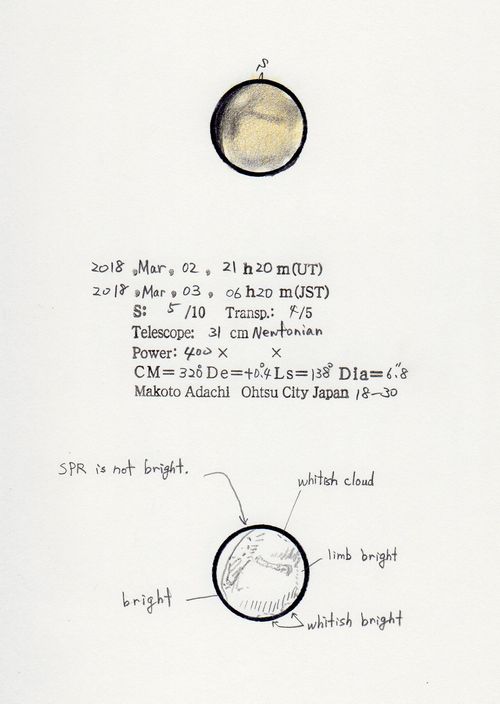 S
2018, Mar, 02, 21 h 20 m (UT)
2018, Mar, 03, 06 h 20 m (JST)
S: 5 /10 Transp.: 4/5
Telescope: 31 cm Newtonian
Power: 400 × ×
CM= 32° De= +0.°4 Ls= 138° Dia= 6."8
Makoto Adachi Ohtsu City Japan 18-30
SPR is not bright.
whitish cloud
limb bright
bright
whitish bright